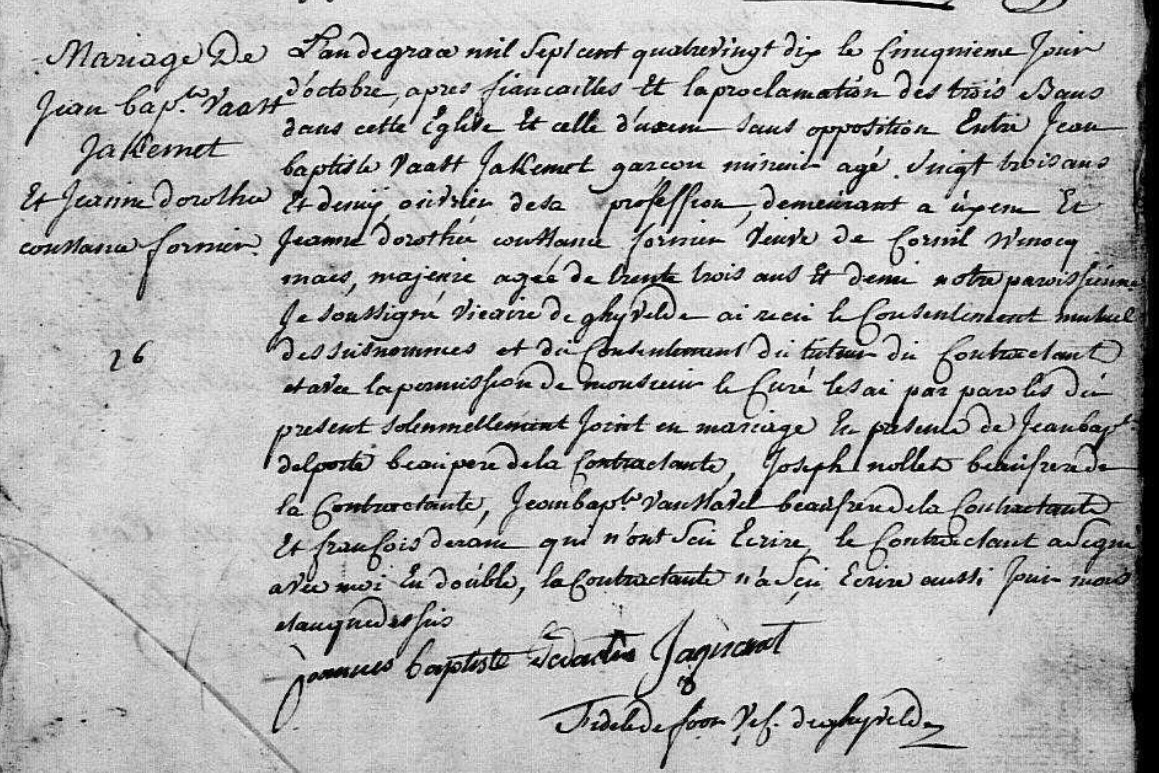 Mariage De
Jean bap.te Vaast
Jakemet
Et Jeanne dorothée
constance fornier.
26
L'an de grace mil Sept cent quatrevingt dix le Cinquieme Jour
d'octobre, apres fiancailles Et la proclamation des trois Bans
dans cette Eglise Et celle d'uxem sans opposition Entre Jean
baptiste Vaast Jakemet garçon mineur agé vingt trois ans
Et demij, ouvrier de sa profession, demeurant a uxem Et
Jeanne dorothée constance fornier Veuve de Cornil Winocq
maes, majeure agée de trente trois ans Et demi notre paroissienne
Je soussigné Vicaire de ghyvelde ai recu le Consentement mutuel
des susnommes et du Consentement du tuteur du Contractant
et avec la permission de monsieur le Curé les ai par paroles du
present solemnellement Joint en mariage En présence de Jean bap.te
delporte beaupere de la Contractante, Joseph nollet beaufrere de
la Contractante, Jean bap.te Vanstavel beaufrere de la Contractante
Et françois deram qui n'ont sçu Ecrire, le Contractant a Signé
avec moi En double, la Contractante n'a sçu Ecrire aussi Jour mois
et an que dessus
Joannes baptiste Jaquemet
Fidele de foor Vic. de ghyvelde